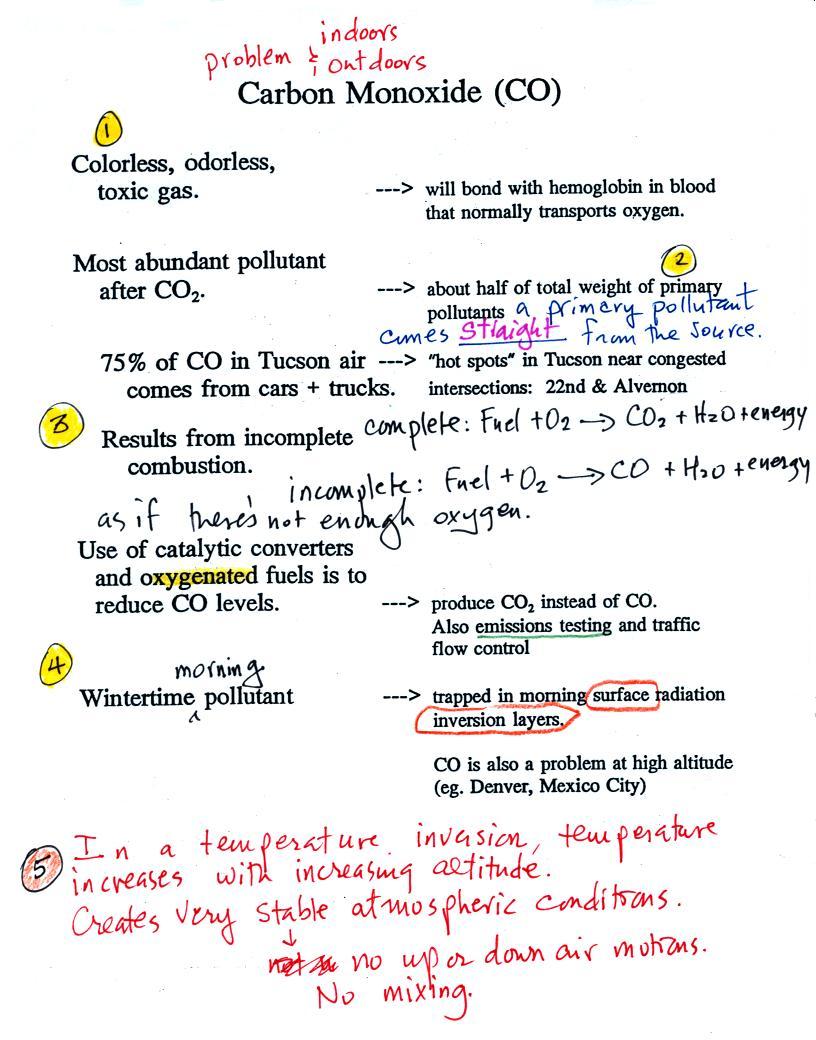 indoors
problem & outdoors
Carbon Monoxide (CO)
1
Colorless, odorless,
toxic gas.
---> will bond with hemoglobin in blood
that normally transports oxygen.
2
Most abundant pollutant
after CO₂.
---> about half of total weight of primary
pollutants a primary pollutant
comes straight from the source.
75% of CO in Tucson air
comes from cars + trucks.
---> "hot spots" in Tucson near congested
intersections: 22nd & Alvernon
3
Results from incomplete
combustion.
complete: Fuel + O₂ → CO₂ + H₂O + energy
incomplete: Fuel + O₂ → CO + H₂O + energy
as if there's not enough oxygen.
Use of catalytic converters
and oxygenated fuels is to
reduce CO levels.
---> produce CO₂ instead of CO.
Also emissions testing and traffic
flow control
4
morning
Wintertime ^ pollutant
---> trapped in morning surface radiation
inversion layers.
CO is also a problem at high altitude
(eg. Denver, Mexico City)
5
In a temperature inversion, temperature
increases with increasing altitude.
Creates very stable atmospheric conditions.
↓
no up or down air motions.
No mixing.